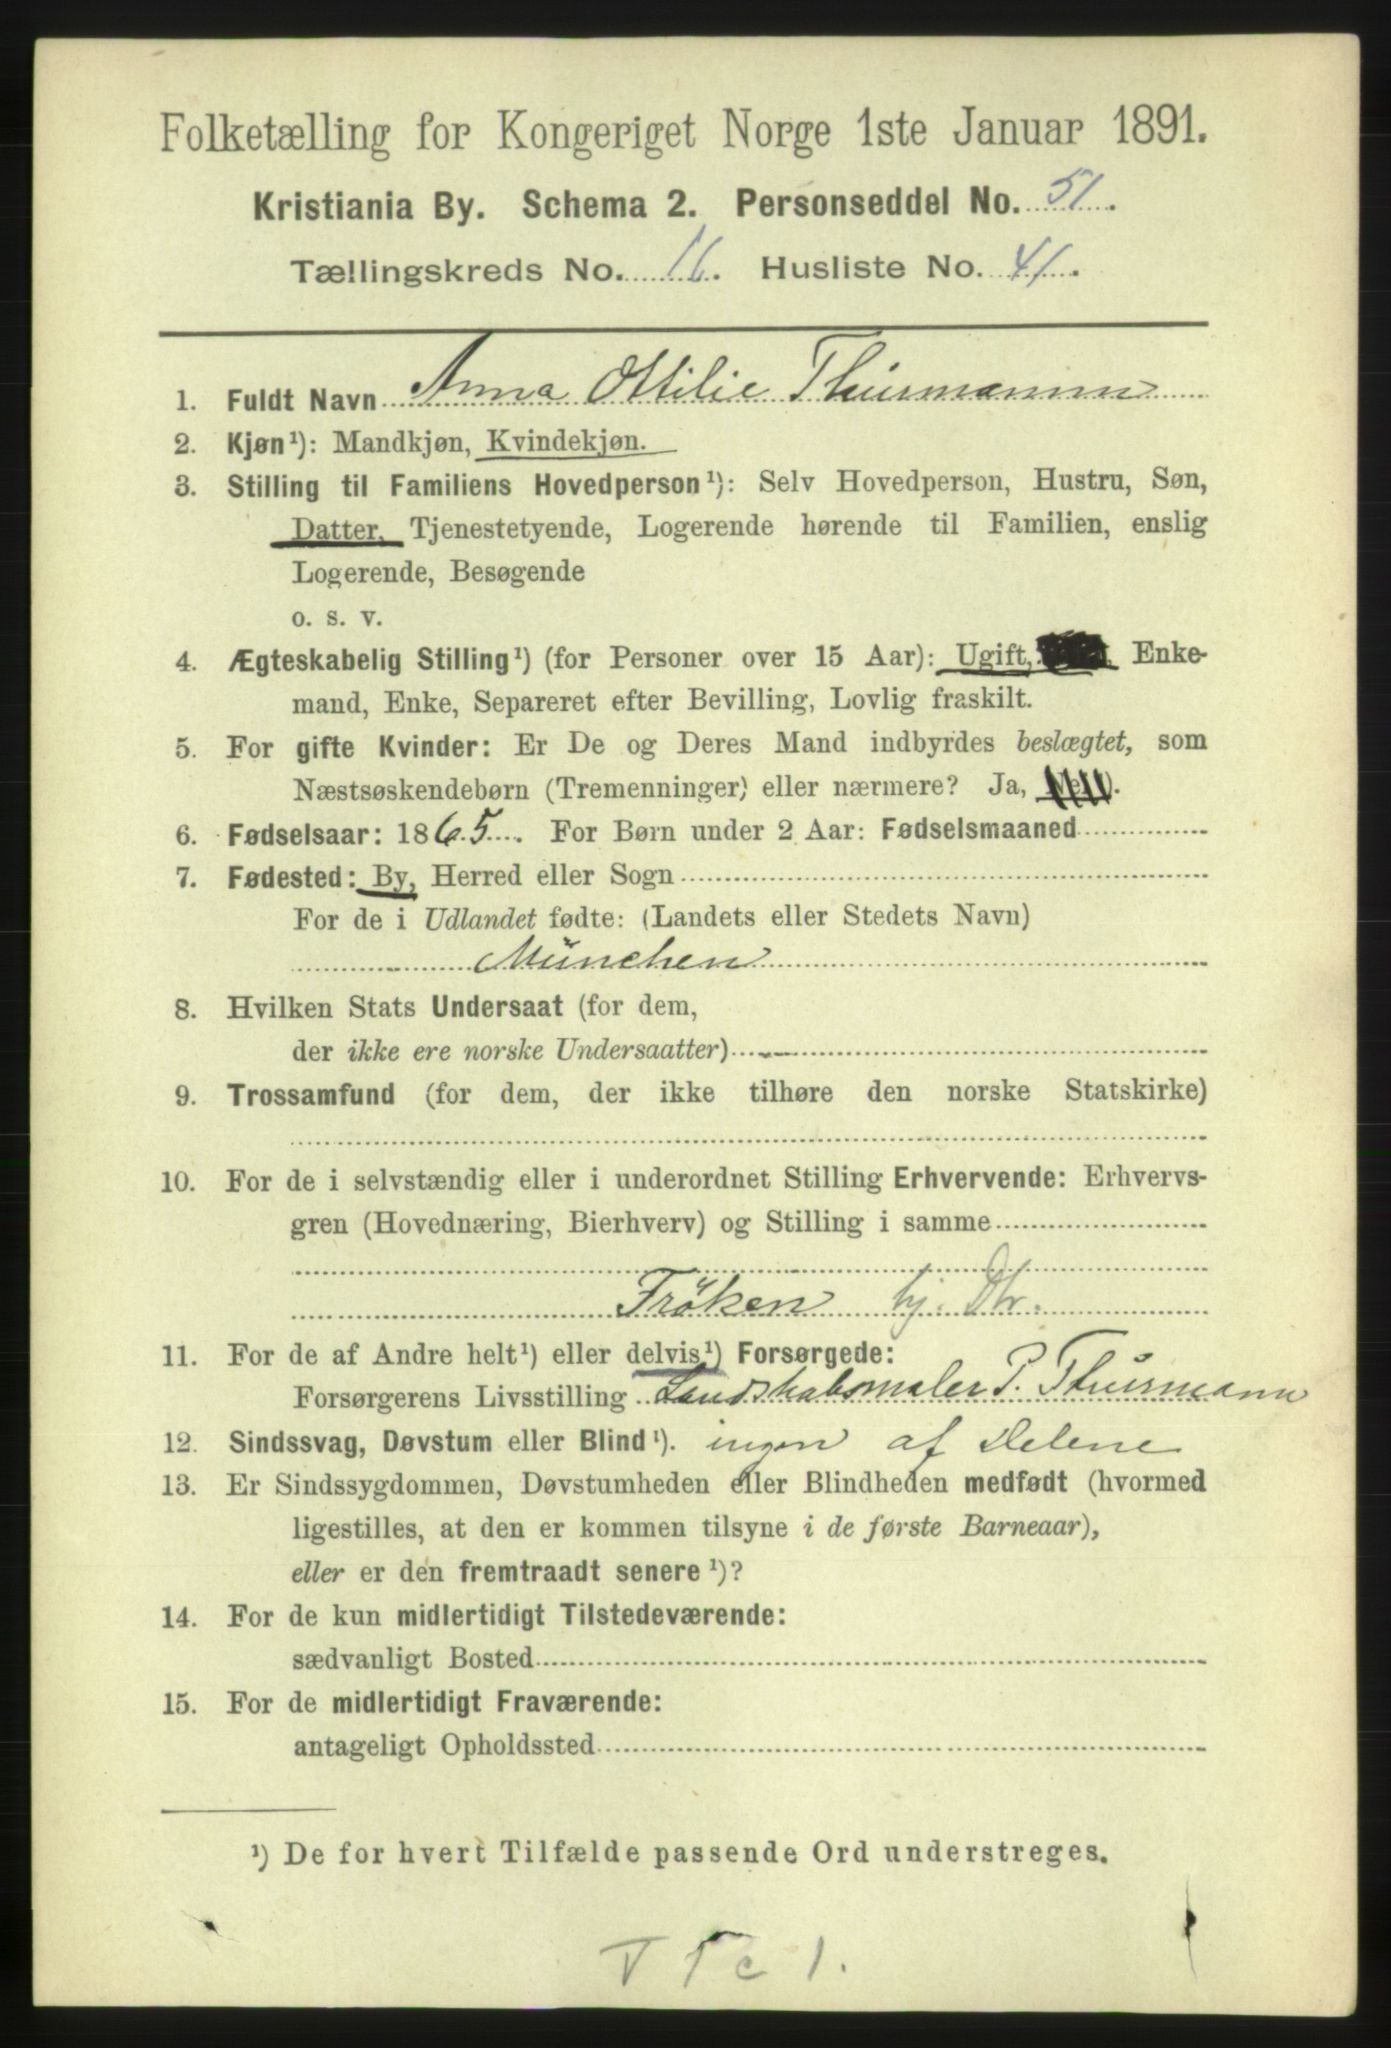 Folketælling for Kongeriget Norge 1ste Januar 1891.
Kristiania By. Schema 2. Personseddel No. 51.
Tællingskreds No. 16. Husliste No. 41.
1. Fuldt Navn Anna Ottilie Thurmann
2. Kjøn¹): Mandkjøn, Kvindekjøn.
3. Stilling til Familiens Hovedperson¹): Selv Hovedperson, Hustru, Søn,
Datter, Tjenestetyende, Logerende hørende til Familien, enslig
Logerende, Besøgende
o. s. v.
4. Ægteskabelig Stilling¹) (for Personer over 15 Aar): Ugift, Enke-
mand, Enke, Separeret efter Bevilling, Lovlig fraskilt.
5. For gifte Kvinder: Er De og Deres Mand indbyrdes beslægtet, som
Næstsøskendebørn (Tremenninger) eller nærmere? Ja, Nei¹).
6. Fødselsaar: 1865. For Børn under 2 Aar: Fødselsmaaned
7. Fødested: By, Herred eller Sogn
For de i Udlandet fødte: (Landets eller Stedets Navn)
München
8. Hvilken Stats Undersaat (for dem,
der ikke ere norske Undersaatter)
9. Trossamfund (for dem, der ikke tilhøre den norske Statskirke)
10. For de i selvstændig eller i underordnet Stilling Erhvervende: Erhvervs-
gren (Hovednæring, Bierhverv) og Stilling i samme
Fröken hj. Dtr.
11. For de af Andre helt¹) eller delvis¹) Forsørgede:
Forsørgerens Livsstilling Landskabsmaler P. Thurmann
12. Sindssvag, Døvstum eller Blind¹). ingen af Delene
13. Er Sindssygdommen, Døvstumheden eller Blindheden medfødt (hvormed
ligestilles, at den er kommen tilsyne i de første Barneaar),
eller er den fremtraadt senere ¹)?
14. For de kun midlertidigt Tilstedeværende:
sædvanligt Bosted
15. For de midlertidigt Fraværende:
antageligt Opholdssted
¹) De for hvert Tilfælde passende Ord understreges.